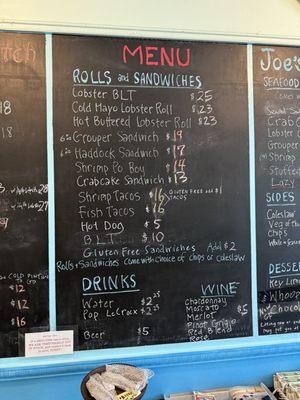 MENU
ROLLS and SANDWICHES
Lobster BLT $25
Cold Mayo Lobster Roll $23
Hot Buttered Lobster Roll $23
6oz Grouper Sandwich $19
6oz Haddock Sandwich $17
Shrimp Po Boy $14
Crabcake Sandwich $13
Shrimp Tacos $16
Gluten Free add $1
Tacos
Fish Tacos $16
Hot Dog $5
BLT $10
Gluten Free Sandwiches Add $2
Rolls + Sandwiches come with choice of chips or coleslaw
DRINKS
Water $2 25
Pop LaCroix $2 25
Beer $5
WINE
Chardonnay
Moscato
Merlot $5
Pinot Grigio
Red Blend
Rose
tch
18
18
with 1 side 28
with 1 side 27
12
12
16
Joe's
SEAFOOD
Crab C
Lobster
Grouper
Shrimp
Stuffed
Lazy
SIDES
Coleslaw
Veg of th
Chips
DESSER
Key Lime
Whoopie
NY Choco